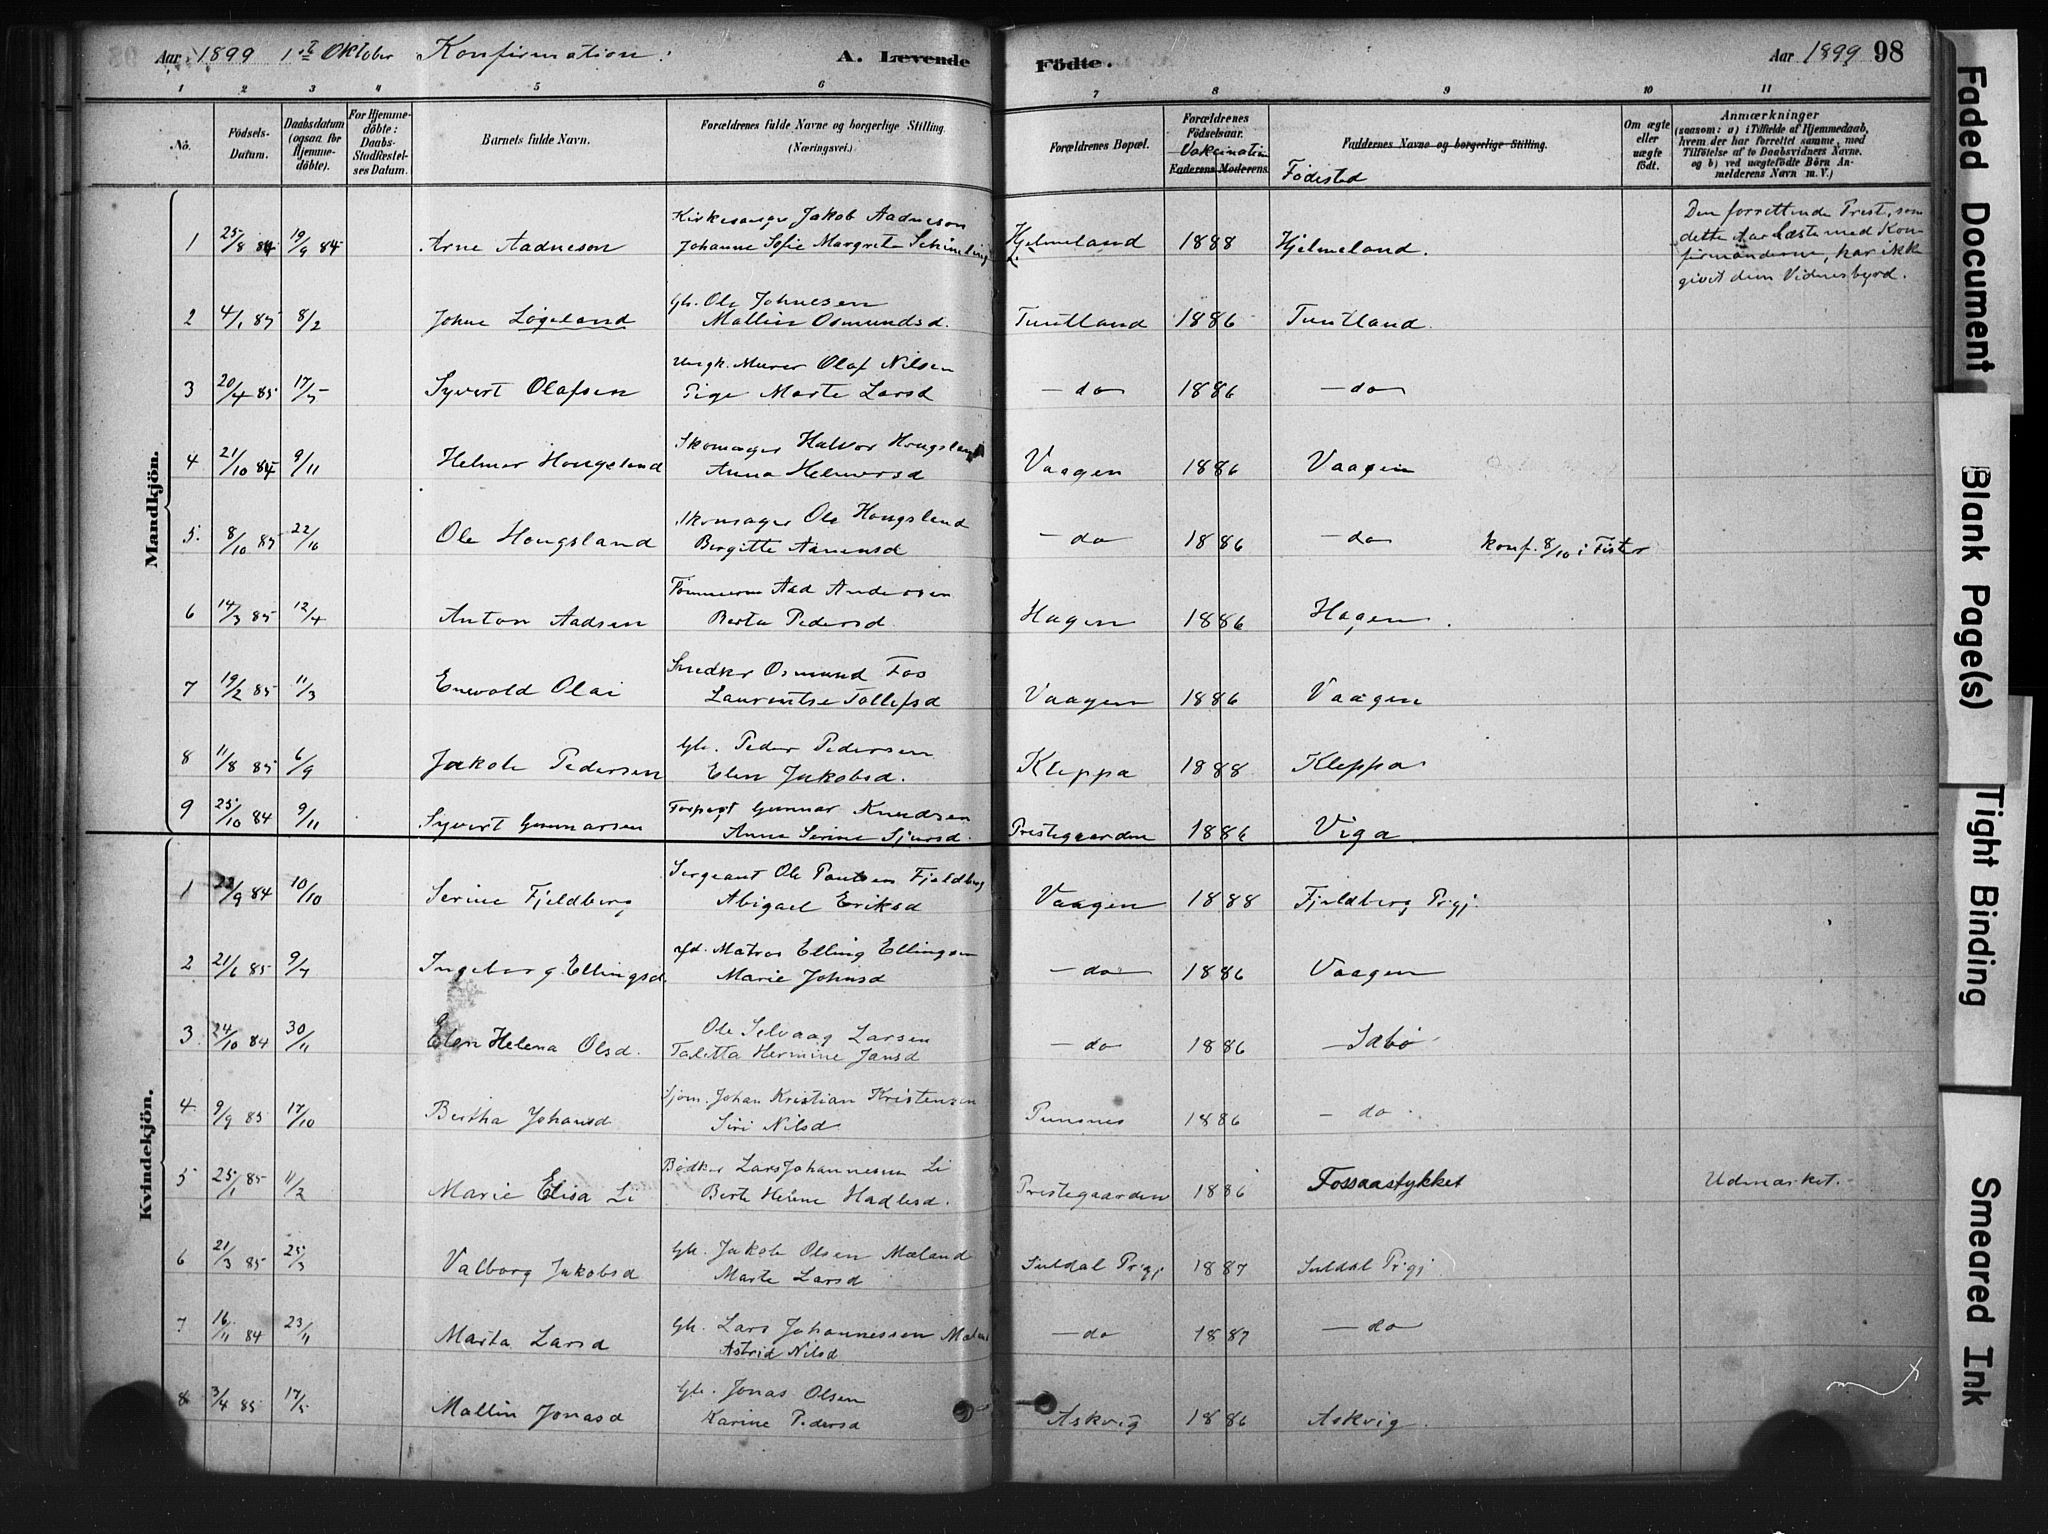 Aar 1899 1ste Oktober Konfirmation: A. Levende Födte. Aar 1899 98
1 2 3 4 5 6 7 8 9 10 11
No.
Födsels-Datum.
Daabsdatum (ogsaa for Hjemmedöbte).
For Hjemmedöbte: Daabs-Stadfæstelses Datum.
Barnets fulde Navn.
Forældrenes fulde Navne og borgerlige Stilling. (Næringsvei.)
Forældrenes Bopæl.
Forældrenes Födselsaar. Vakcination
Faderens Moderens.
Faddernes Navne og borgerlige Stilling.
Födested
Om ægte eller uægte födt.
Anmærkninger
(saasom: a) i Tilfælde af Hjemmedaab, hvem der har forrettet samme, med Tilföielse af to Daabsvidners Navne. og b) ved uægtefödte Börn Anmelderens Navn m. V.)
Mandkjön.
Kirkesanger Jakob Aadneson
1 25/8 84 19/9 84 Arne Aadneson Johanne Sofie Margrete Hjelmeland 1888 Hjelmeland.
Den forrettende Prest, som
dette Aar læste med Kon-
firmanderne, har ikke
givet dem Vidnesbyrd.
Gb. Ole Johnesen
2 4/1 85 8/2 Johne Løgeland Mallin Osmundsd. Tuntland 1886 Tuntland.
Ungk. Murer Olaf Nilsen
3 20/4 85 17/5 Syvert Olafsen Pige Marte Larsd — do — 1886 — do —
Skomager Halvor Hougsland
4 21/10 84 9/11 Helmer Hougsland Anna Helmersd Vaagen 1886 Vaagen
Skomager Ole Hougsland
5. 8/10 85 22/10 Ole Hougsland Birgitte — do 1886 — do konf. 8/10 i Fister
Aad Andersen
6 14/3 85 12/4 Anton Aadsen Berta Pedersd Hagen 1886 Hagen.
Snedker Osmund Fos
7 19/2 85 11/3 Enevold Olai Laurentse Tollefsd Vaagen 1886 Vaagen
Gb. Peder Pedersen
8 11/8 85 6/9 Jakob Pedersen Elen Jakobsd. Kleppa 1888 Kleppa
Forpagt Gunnar Knudsen
9 25/10 84 9/11 Syvert Gunnarsen Anne Serine Sjursd. Prestegaarden 1886 Viga
Kvindekjön.
Sergeant Ole Paulsen Fjeldberg
1 22/9 84 10/10 Serine Fjeldberg Abigael Eriksd Vaagen 1888 Fjeldberg Prgj.
Matros Elling Ellingsen
2 21/6 85 9/7 Ingeborg Ellingsd. Marie Johnsd — do — 1886 Vaagen
Ole Selvaag Larsen
3 24/10 84 30/11 Elen Helena Olsd. Taletta Hermine Jansd — do 1886 — Sabø
Sjøm. Johan Kristian Kristensen
4 9/9 85 17/10 Bertha Johansd Siri Nilsd Punsnes 1886 — do
Bødker Lars Johannesen Li
5 25/1 85 11/2 Marie Elisa Li Berte Helene Hadlesd. Prestegaarden 1886 Fossaastykket Udmærket.
Gb. Jakob Olsen Mæland
6 21/3 85 25/3 Valborg Jakobsd Marte Larsd Suldal Prgj 1887 Suldal Prgj
Gb. Lars Johannessen
7 16/11 84 23/11 Marta Larsd Astrid Nilsd — do 1887 — do
Gb. Jonas Olsen
8 3/4 85 17/5 Mallin Jonasd Karine Pedersd Askvig 1886 Askvig.
Faded Document
Blank Page(s)
Tight Binding
Smeared Ink